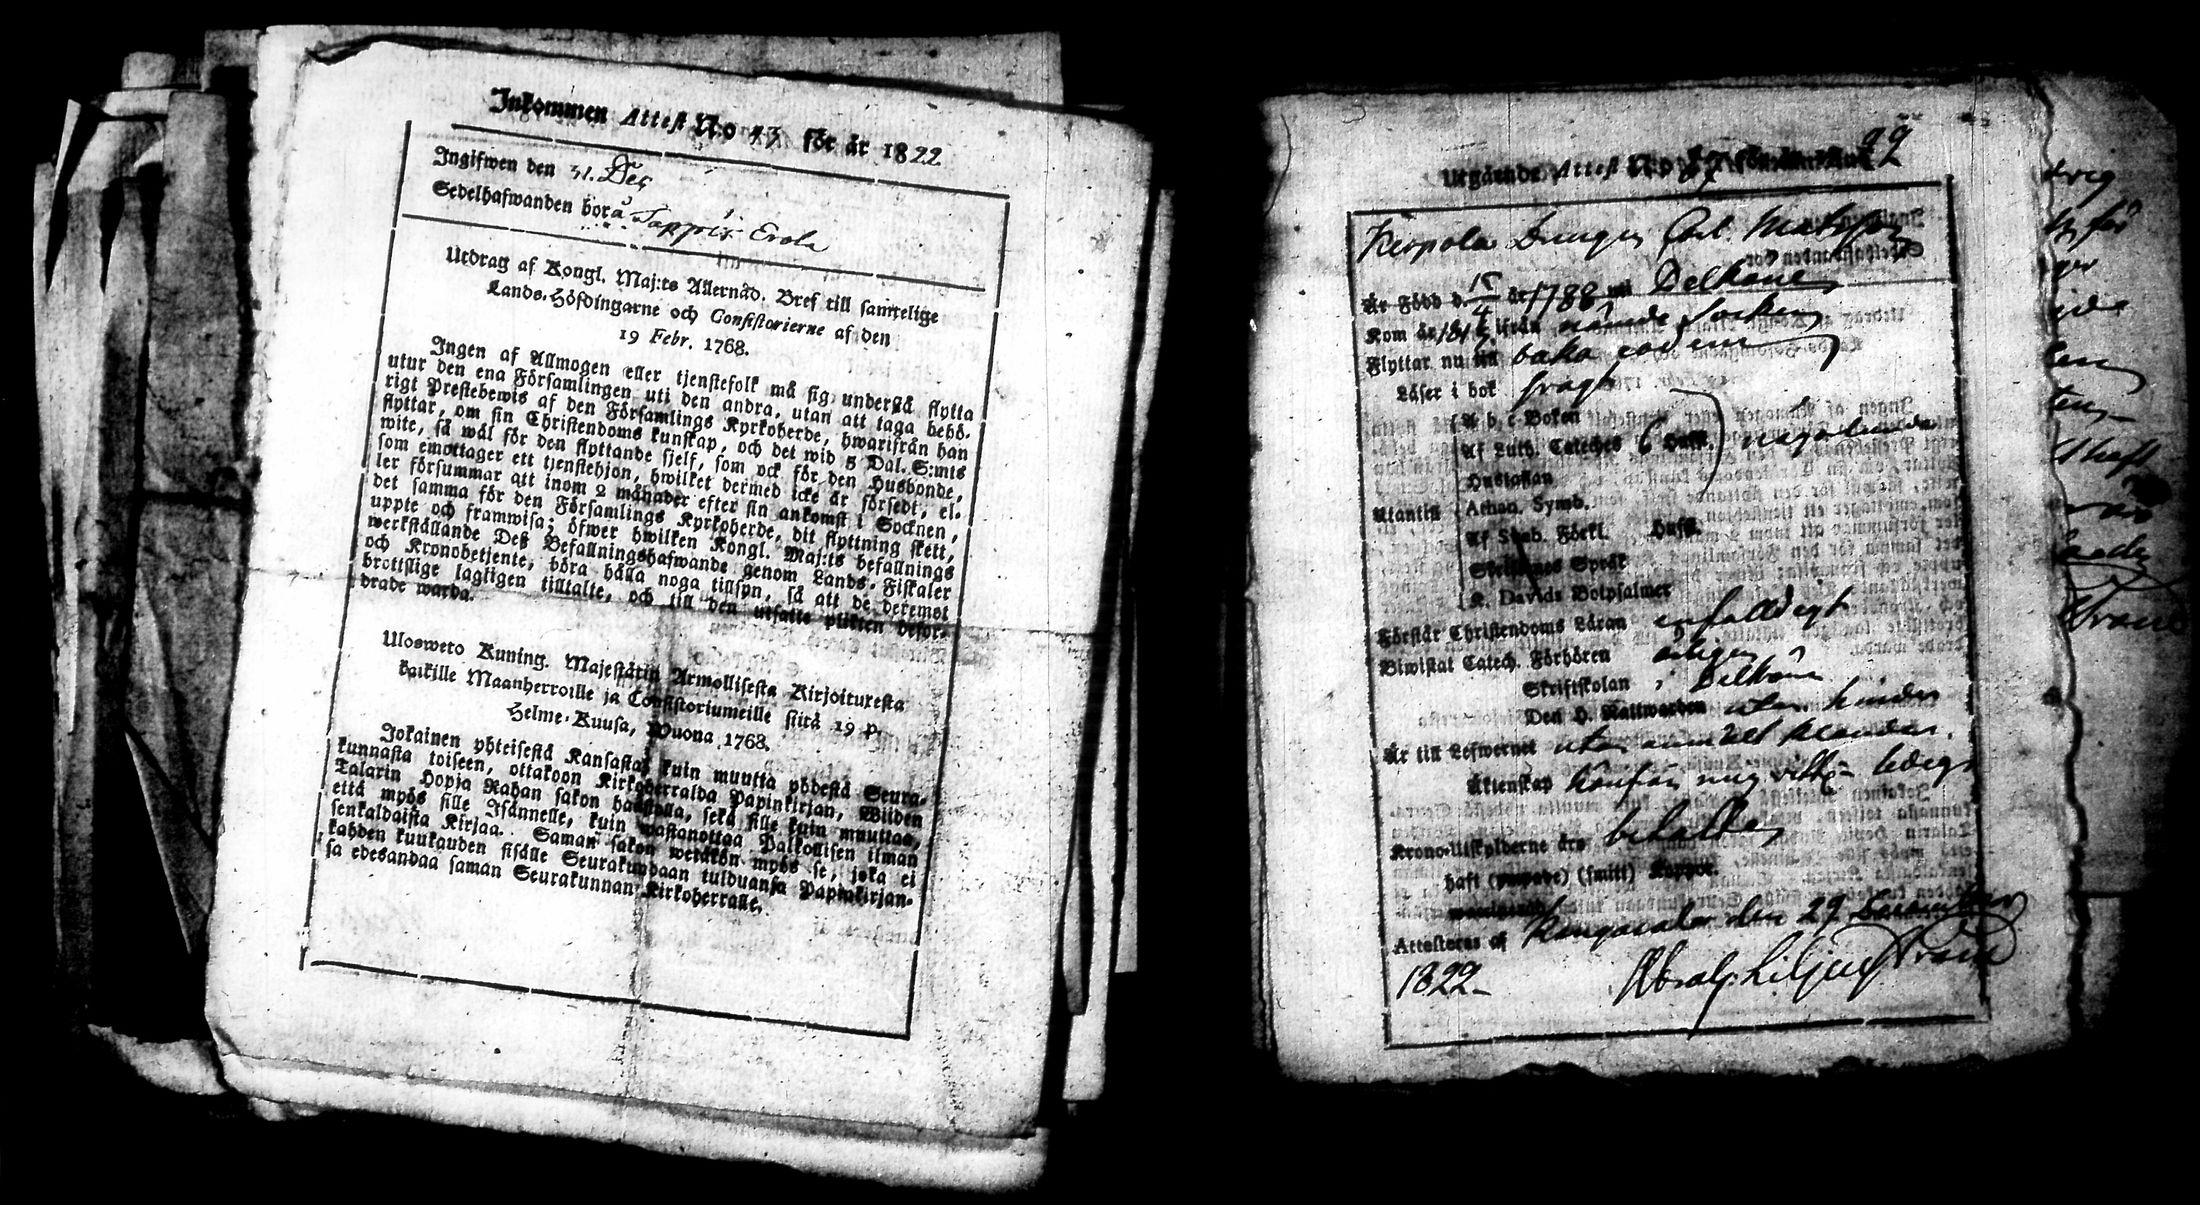 Inkommen Attest No 43 för år 1822
Ingifwen den 31. Dec
Sedelhafwanden bor å Sappi Erola
Utdrag af Kongl. Maj:ts Allernåd. Bref till samtelige
Lands-Höfdingarne och Consistorierne af den
19 Febr. 1768.
Ingen af Allmogen eller tjenstefolk må sig understå flytta
utur den ena Församlingen uti den andra, utan att taga behö-
rigt Prestebewis af den Församlings Kyrkoherde, hwarifrån han
flyttar, om sin Christendoms kunskap, och det wid 5 Dal. S:mts
wite, så wäl för den flyttande sjelf, som ock för den Husbonde,
som emottager ett tjenstehjon, hwilket dermed icke är försedt, el-
ler försummar att inom 2 månader efter sin ankomst i Socknen,
det samma för den Församlings Kyrkoherde, dit flyttning skett,
uppte och framwisa; öfwer hwilken Kongl. Maj:ts befallnings
werkställande Deß Befallningshafwande genom Lands-Fiskaler
och Kronobetjente, böra hålla noga tillsyn, så att de deremot
brottslige lagligen tilltalte, och till den utsatte plikten befor-
drade warda.
Ulosweto Kuning. Majestätin Armollisesta Kirjoituxesta
kaikille Maanherroille ja Consistoriumeille siitä 19 p.
Helme-Kuusa, Wuona 1768.
Jokainen yhteisestä Kansasta, kuin muutta yhdestä Seura-
kunnasta toiseen, ottakoon Kirkoherralda Papinkirjan, Wiiden
Talarin Hopja Rahan sakon haastolla, sekä sille kuin muuttaa,
että myös sille Isännelle, kuin wastanottaa Palkollisen ilman
senkaldaista Kirjaa. Saman sakon wetäkön myös se, joka ei
kahden kuukauden sisälle Seurakundaan tulduansa Papinkirjan-
sa edesandaa saman Seurakunnan Kirkoherralle.
Utgående Attest No 22
Drengen Matsson
Är Född d. 15/4 år 1788 uti Pelkäne
Kom år ifrån nämde Socken
Flyttar nu till
Läser i bok
A b c Boken
Af Luth. Cateches 6 Hufst. någorlunda
Hustaflan
Utantill Athan. Symb.
Af Sveb. Förkl. Hufst.
Skriftenes Språk
K. Davids Botpsalmer
Förstår Christendoms Läran enfaldigt
Biwistat Catech. Förhören årligen
Skriftskolan i Pelkäne
Den H. Nattwarden utan hinder
Är till Lefwernet utan anmält klander.
Äktenskap ledigt
Krono-Utskylderne äro betalte
haft Koppor.
Attesteras af Kangasala den 29 December
1822 Abrah. Liljestrand